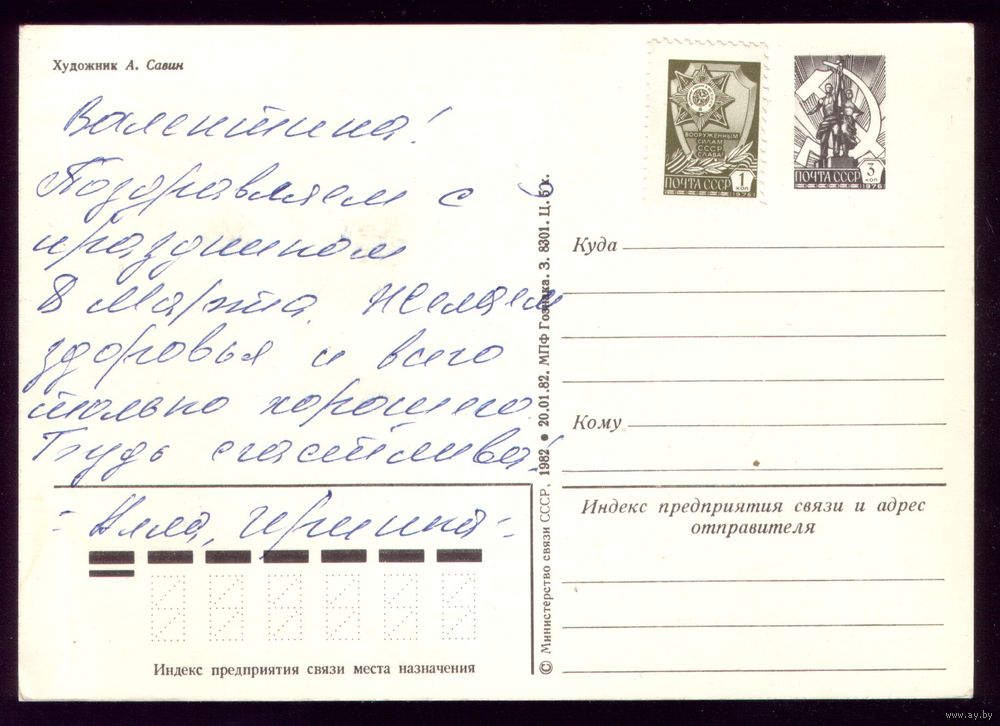 Художник А. Савин
Валентина!
Поздравляем с
праздником
8 Марта. Желаем
здоровья и всего
только хорошего.
Будь счастлива!
= Иринка =
ВООРУЖЕННЫМ
СИЛАМ
СССР
СЛАВА!
ПОЧТА СССР
1
КОП
1976
ПОЧТА СССР
3
КОП
1976
Куда
Кому
Индекс предприятия связи и адрес
отправителя
© Министерство связи СССР, 1982 ● 20.01.82. МПФ Гознака. З. 8301. Ц. 5 к.
Индекс предприятия связи места назначения
www.ay.by